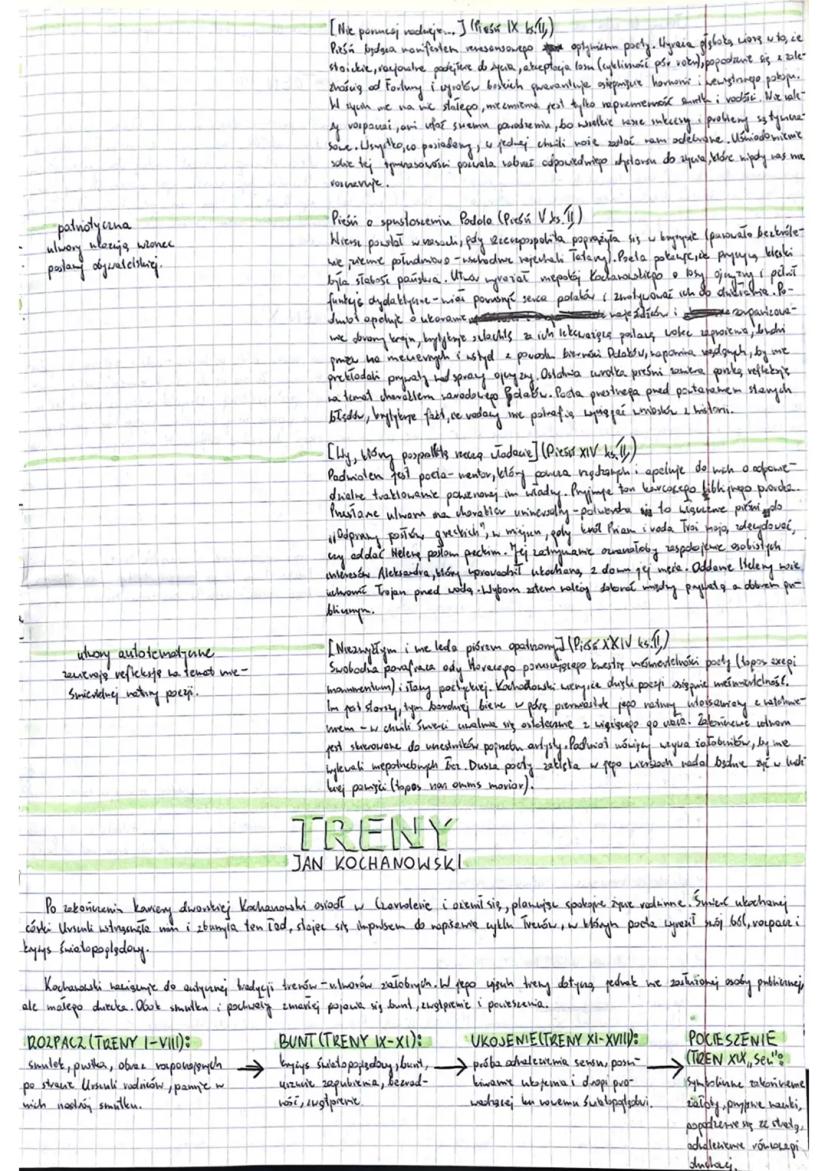 [Nie porzucaj nadzieje...] (Pieśń IX ks. II)
Pieśń będąca manifestem renesansowego optymizmu poety. Wyraża głęboką wiarę w to, że
stoickie, racjonalne podejście do życia, akceptacja losu (cykliczność pór roku), pogodzenie się z zależ-
nością od Fortuny i wyroków boskich gwarantuje osiągnięcie harmonii i wewnętrznego pokoju.
W życiu nie ma nic stałego, niezmienna jest tylko naprzemienność smutku i radości. Nie nale-
ży rozpaczać, ani ufać swemu powodzeniu, bo wielkie nasze sukcesy i problemy są tymcza-
sowe. Wszystko, co posiadamy, w jednej chwili może zostać nam odebrane. Uświadomienie
sobie tej tymczasowości pozwala nabrać odpowiedniego dystansu do życia, które nigdy nas nie
rozczaruje.
patriotyczna
utwory ukazują wzorzec
postawy obywatelskiej.
Pieśń o spustoszeniu Podola (Pieśń V ks. II)
Wiersz powstał w czasach, gdy Rzeczpospolita pogrążyła się w kryzysie (panowało bezkróle-
wie, ziemie południowo-wschodnie najechali Tatarzy). Poeta pokazuje, że przyczyną klęski
była słabość państwa. Utwór wyrażał niepokój Kochanowskiego o losy ojczyzny i pełnił
funkcję dydaktyczną - miał poruszyć serca polaków i zmotywować ich do działania. Po-
dmiot apeluje o ukaranie najeźdźców i zorganizowa-
nie obrony kraju, krytykuje szlachtę za ich lekceważącą postawę wobec zagrożenia, budzi
gniew na niewiernych i wstyd z powodu bierności Polaków, napomina rządzących, by nie
przekładali prywaty nad sprawy ojczyzny. Ostatnia zwrotka pieśni zawiera gorzką refleksję
na temat charakteru narodowego Polaków. Poeta przestrzega przed powtarzaniem starych
błędów, krytykuje fakt, że rodacy nie potrafią wyciągać wniosków z historii.
[Wy, którzy pospolitą rzeczą władacie] (Pieśń XIV ks. II)
Podmiotem jest poeta-mentor, który poucza rządzących i apeluje do nich o odpowie-
dzialne traktowanie powierzonej im władzy. Przyjmuje ton karcącego biblijnego proroka.
Przesłanie utworu ma charakter uniwersalny - potwierdza to włączenie pieśni do
"Odprawy posłów greckich", w miejscu, gdy król Priam i rada Troi mają zdecydować,
czy oddać Helenę posłom greckim. Jej zatrzymanie oznaczałoby zaspokojenie osobistych
interesów Aleksandra, który uprowadził ukochaną z domu jej męża. Oddanie Heleny może
uchronić Trojan przed wojną. Wyboru zatem należy dokonać między prywatą a dobrem pu-
blicznym.
utwory autotematyczne
zawierają refleksję na temat nie-
śmiertelnej natury poezji.
[Niezwykłym i nie leda piórem opatrzony] (Pieśń XXIV ks. II)
Swobodna parafraza ody Horacego poruszającego kwestię nieśmiertelności poety (topos exegi
monumentum) i sławy poetyckiej. Kochanowski wierzy, że dzięki poezji osiągnie nieśmiertelność.
Im jest starszy, tym bardziej bierze w górę pierwiastek jego natury utożsamiany z
- w chwili śmierci uwalnia się ostatecznie z więżącego go ciała. Zakończenie utworu
jest skierowane do uczestników pogrzebu artysty. Podmiot mówiący wzywa żałobników, by nie
wylewali niepotrzebnych łez. Dusza poety zaklęta w jego wierszach nadal będzie żyć w ludz-
kiej pamięci (topos non omnis moriar).
TRENY
JAN KOCHANOWSKI
Po zakończeniu kariery dworskiej Kochanowski osiadł w Czarnolesie i ożenił się, planując spokojne życie rodzinne. Śmierć ukochanej
córki Urszuli wstrząsnęła nim i zburzyła ten ład, stając się impulsem do napisania cyklu Trenów, w których poeta wyraził swój ból, rozpacz i
kryzys światopoglądowy.
Kochanowski nawiązuje do antycznej tradycji trenów - utworów żałobnych. W jego ujęciu treny dotyczą jednak nie zasłużonej osoby publicznej,
ale małego dziecka. Obok smutku i pochwały zmarłej pojawia się bunt, zwątpienie i pocieszenie.
ROZPACZ (TRENY I-VIII):
smutek, pustka, obraz rozpaczających
po stracie Urszuli rodziców, panuje w
nich nastrój smutku.
→
BUNT (TRENY IX-XI):
kryzys światopoglądowy, bunt,
uczucie zagubienia, bezrad-
ność, zwątpienie.
→
UKOJENIE (TRENY XI-XVIII):
próba odnalezienia sensu, poszu-
kiwanie ukojenia i drogi pro-
wadzącej ku nowemu światopoglądowi.
→
POCIESZENIE
(TREN XIX „Sen"):
symboliczne zakończenie
żałoby, przyjęcie nauki,
pogodzenie się ze stratą,
odnalezienie równowagi
duchowej.